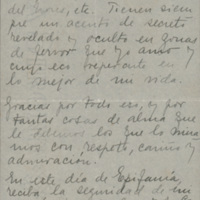 del Greco, etc. Tienen siem
pre un acento de secreto
revelado y oculto en zonas
de fervor que yo amo y
cuyo eco repercute en
lo mejor de mi vida.
Gracias por todo eso, y por
tantas cosas de alma que
le debemos los que lo mira
mos con respeto, cariño y
admiración.
En este día de Epifanía
reciba la seguridad de un